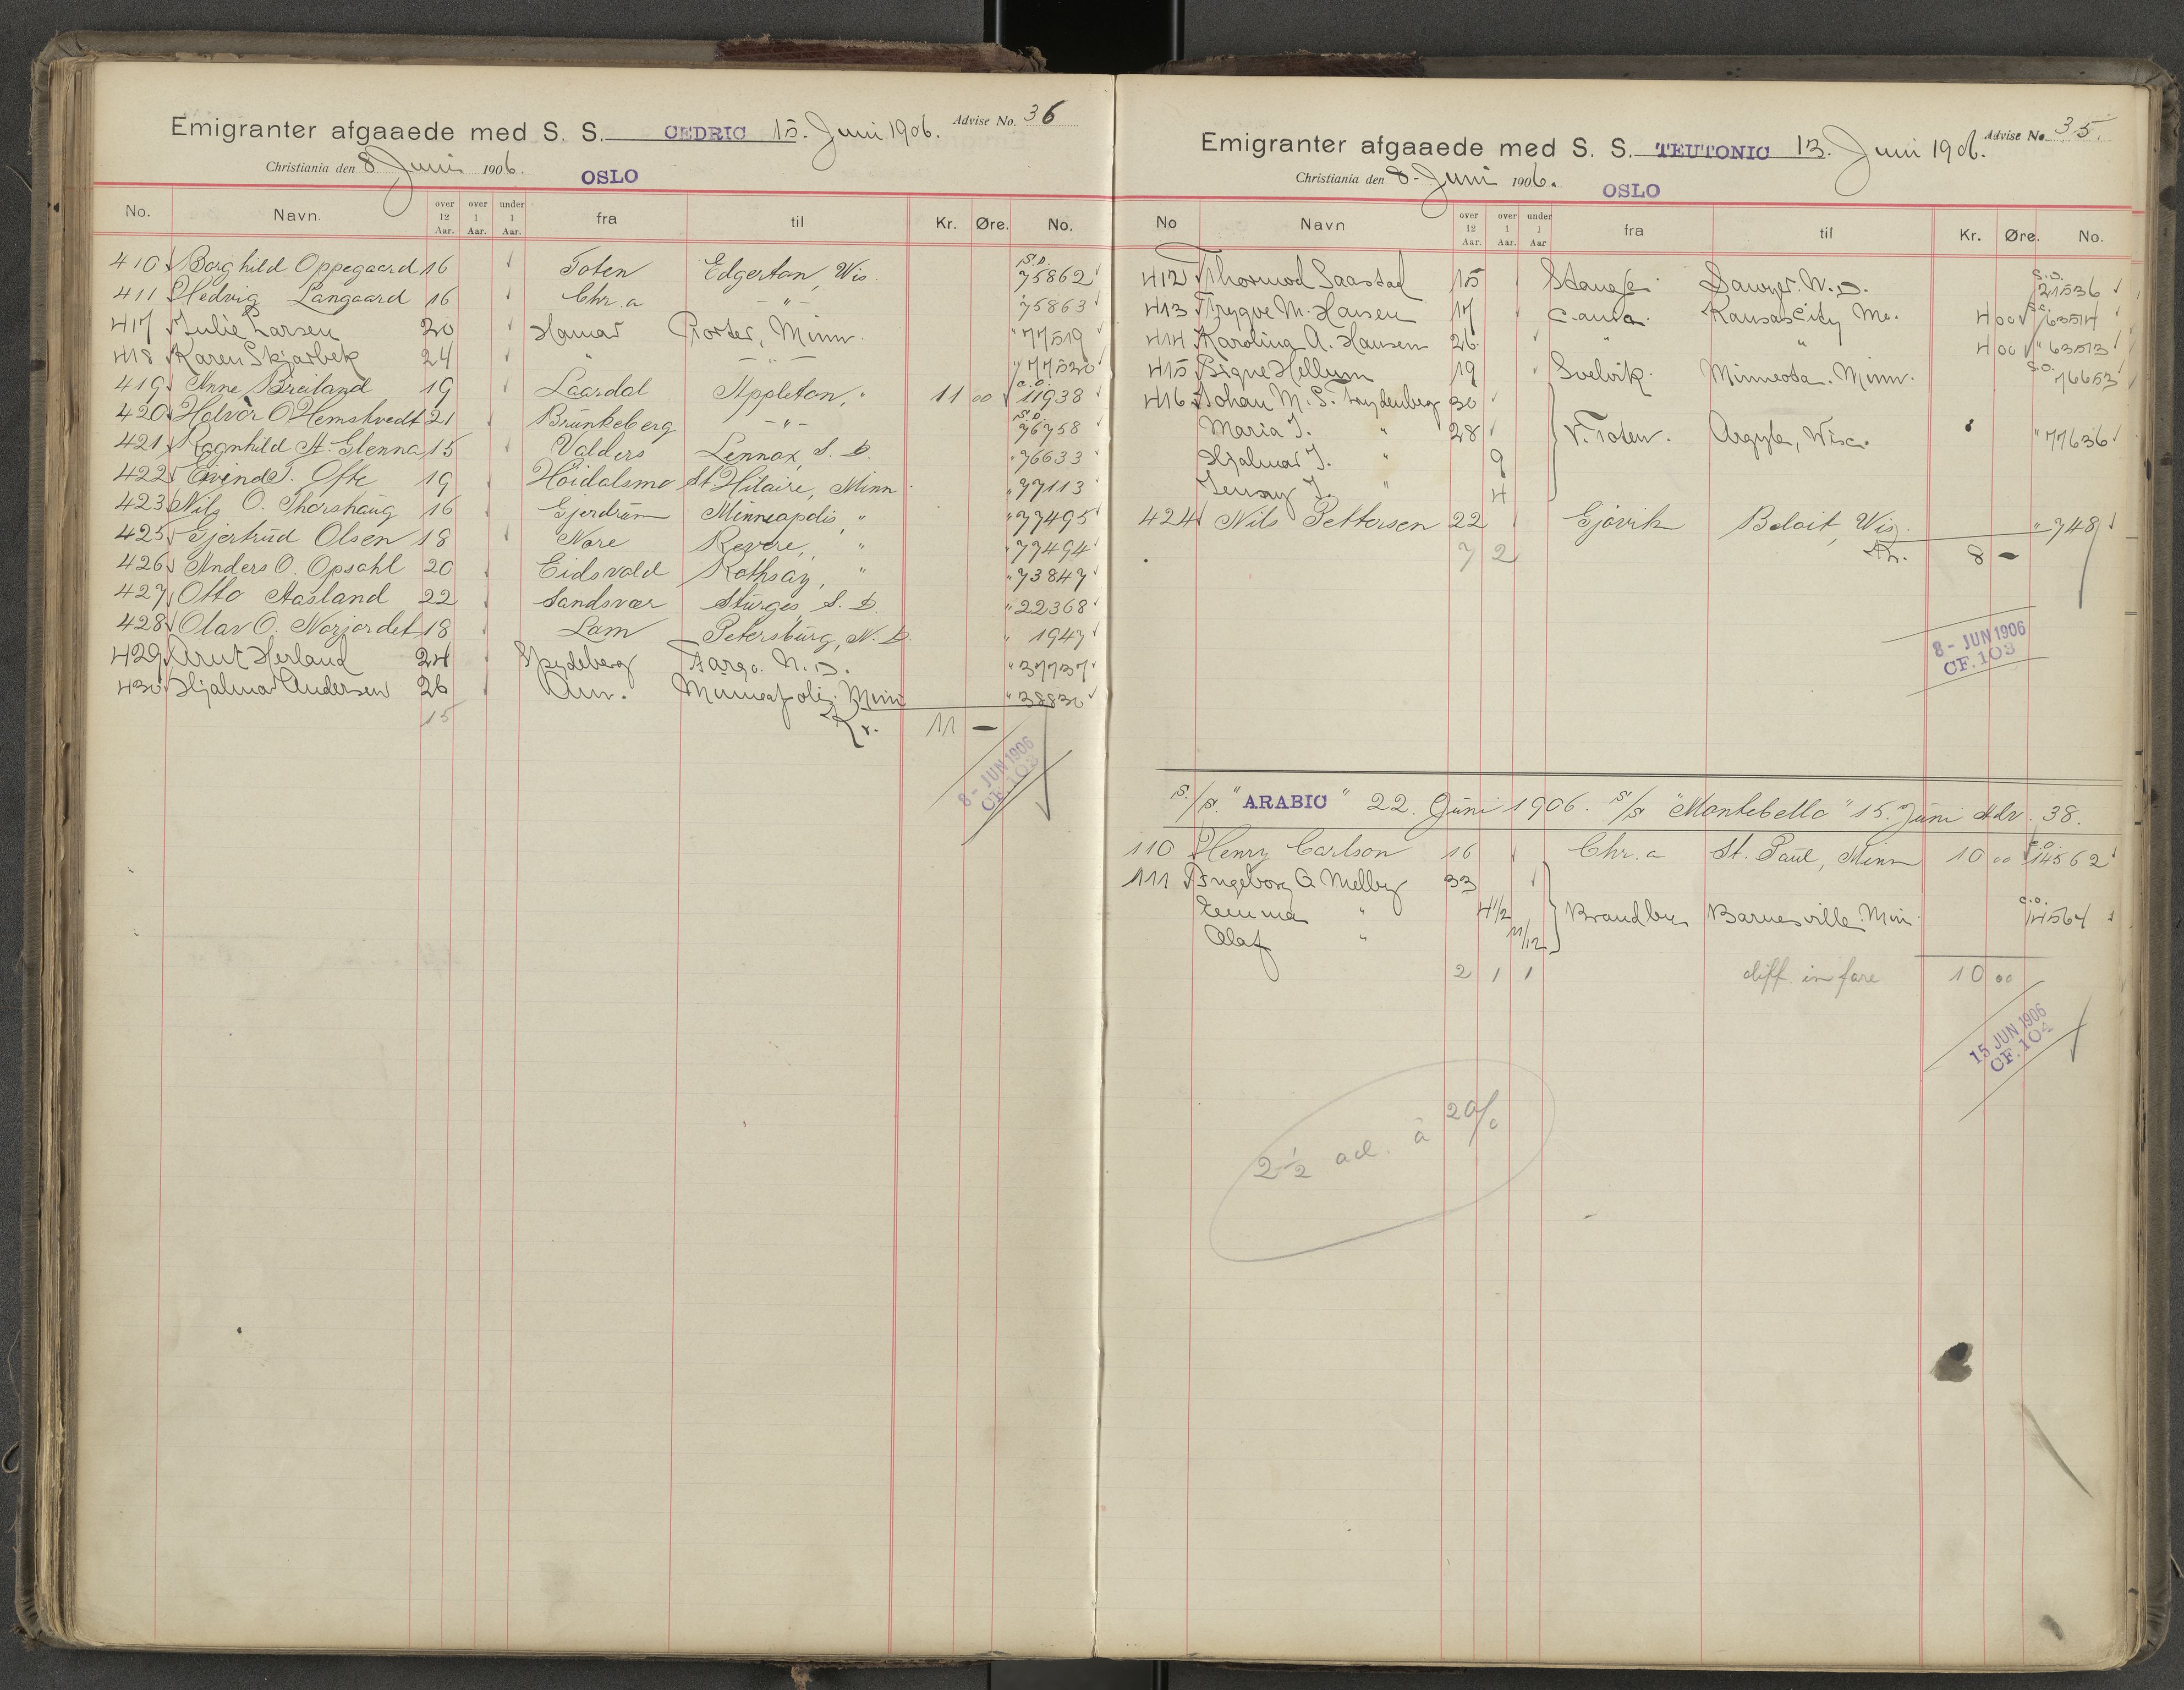 Emigranter afgaaede med S. S. CEDRIC 15. Juni 1906. Advise No. 36
Christiania den 8 Juni 1906. OSLO
No. Navn. over 12 Aar. over 1 Aar. under 1 Aar. fra til Kr. Øre. No.
410 Borghild Oppegaard 16 Toten Edgerton, Wis. S.O. 75862
411 Hedvig Langaard 16 Chr.a -"- 75863
417 Julie Larsen 20 Hamar Porter, Minn. " 77519
418 Karen Skjærbek 24 " -"- " 77520
419 Anne Breiland 19 Laardal Appleton, " 11 00 C.O. 11938
420 Halvor O. Hemskvedt 21 Brunkeberg -"- S.O. 76758
421 Ragnhild A. Glenna 15 Valders Lennox, S. D. " 76633
422 Eivind T. Ofte 19 Höidalsmo St. Hilaire, Minn. " 77113
423 Nils O. Thorshaug 16 Gjerdrum Minneapolis, " " 77495
425 Gjertrud Olsen 18 Nore Revere, " " 77494
426 Anders O. Opsahl 20 Eidsvold Rothsay, " " 73847
427 Otto Aasland 22 Sandsvær Sturges, S. D. " 22368
428 Olav O. Norjordet 18 Lom Petersburg, N. D. " 1947
429 Arut Herland 24 Spydeberg Fargo. N. D. " 37737
430 Hjalmar Andersen 26 Minneapolis. Minn " 38830
15 Kr. 11 -
8 - JUN 1906
CF. 103
Emigranter afgaaede med S. S. TEUTONIC 13. Juni 1906. Advise No. 35.
Christiania den 8 - Juni 1906. OSLO
No Navn over 12 Aar. over 1 Aar. under 1 Aar fra til Kr. Øre. No.
412 Thormod Saastad 15 Stange. Sawyer. N. D. S.O. 21536
413 Trygve M. Hansen 17 Kansas City Mo. 4 00 S.C. 63514
414 Karolina A. Hansen 26 " " 4 00 " 63513
415 Signe Hellum 19 Svelvik. Minneota. Minn. S.O. 76653
416 Johan M. S. Frydenberg 30
Maria J. " 28 V. Toten. Argyle, Wisc. " 77636
Hjalmar J. " 9
Jenny J. " 4
424 Nils Pettersen 22 Gjövik Beloit, Wis. " 748
7 2 Kr. 8 -
8 - JUN 1906
CF. 103
S./S. " ARABIC " 22. Juni 1906. S/S "Montebello" 15. Juni Adv. 38.
110 Henry Carlson 16 Chr.a St. Paul, Minn 10 00 C.O. 14562
111 Ingeborg A Melby 33
Emma " 4 1/2 Brandbu Barnesville. Min. C.O. 14564
Olaf " 11/12
2 1 1 diff. in fare 10 00
15 JUN 1906
CF. 104
2 1/2 ad. à 20/0